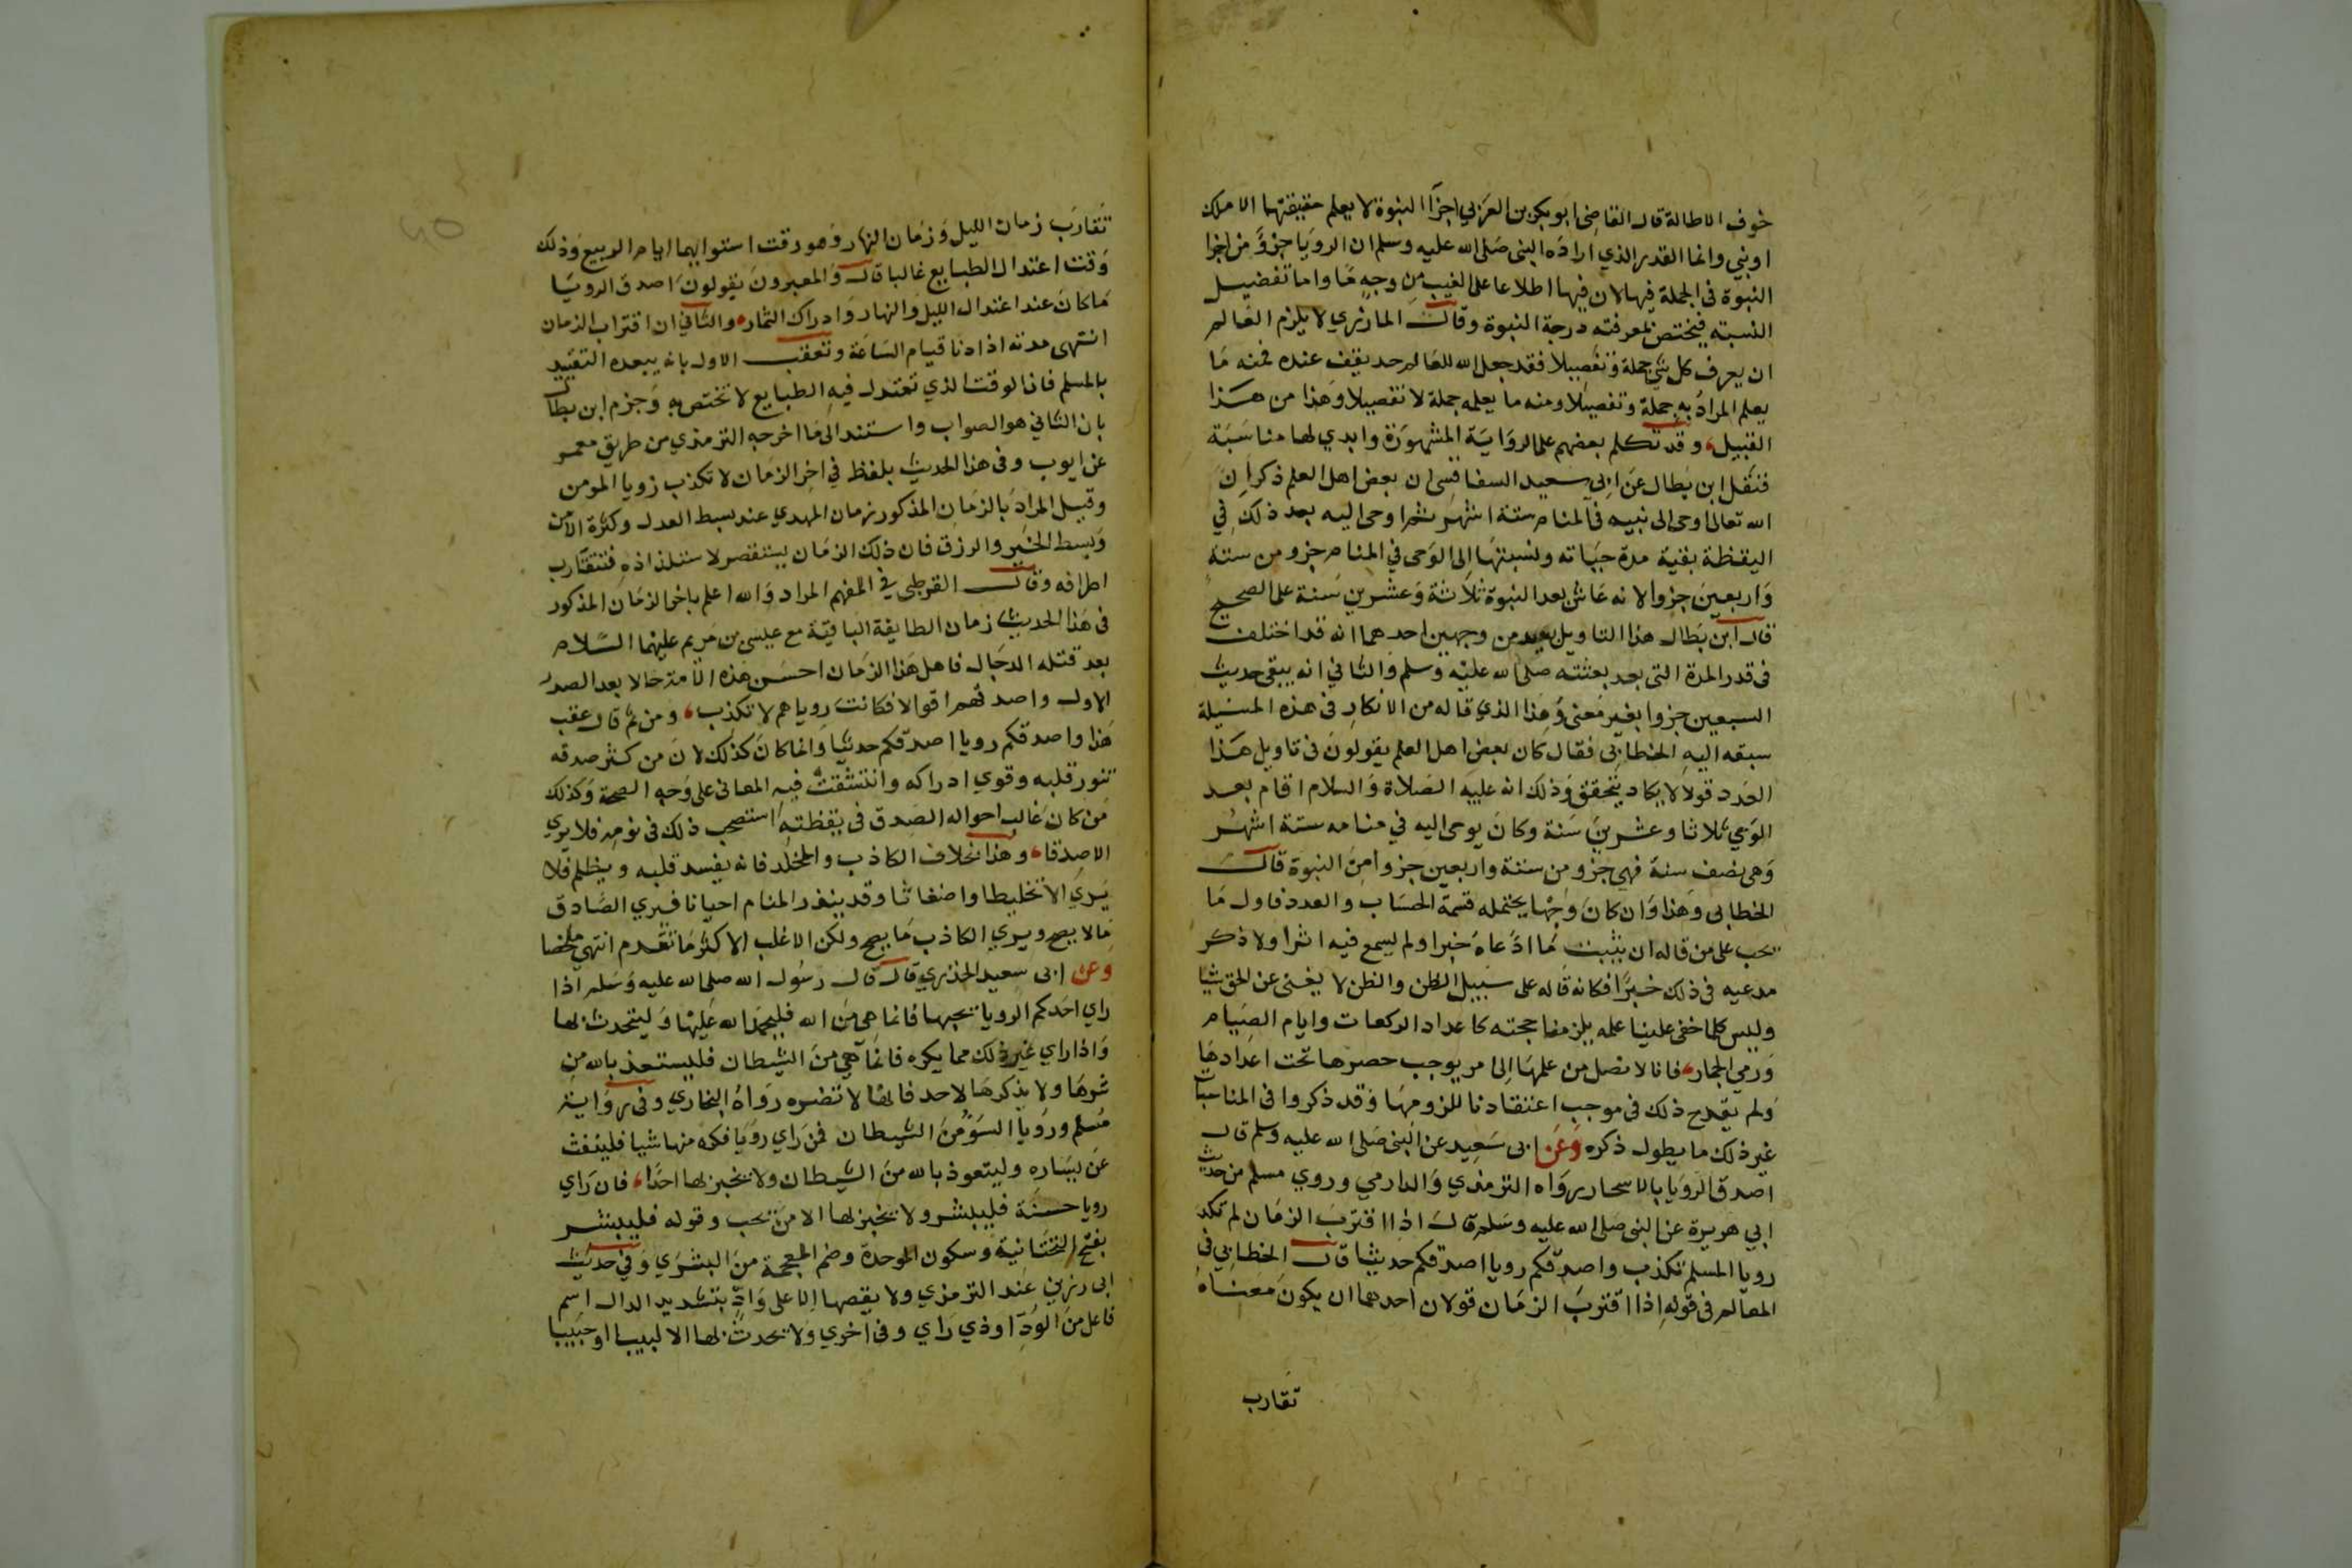 خوف الاطالة قال القاضي ابو بكر بن العربي اجزآ النبوة لا يعلم حقيقتها الا ملك
او نبي وانما القدر الذي اراده النبى صلى الله عليه وسلم ان الرويا جزؤ من اجزا
النبوة فى الجملة فيها لان فيها اطلاعا على الغيب من وجه ما واما تفضيل
النسبته فيختص بمعرفته درجة النبوة وقال المازري لا يلزم العالم
ان يعرف كل شي جملة وتفصيلا فقد جعل الله للعالم حد يقف عنده فمنه ما
يعلم المراد به جملة وتفصيلا ومنه ما يعلمه جملة لا تفصيلا وهذا من هذا
القبيل وقد تكلم بعضهم على الرواية المشهورة وابدي لها مناسبة
فنقل ابن بطال عن ابى سعيد السفاقسى ان بعض اهل العلم ذكر ان
الله تعالى اوحى الى نبيه في المنام ستة اشهر ثم اوحى اليه بعد ذلك في
اليقظة بقية مدة حياته ونسبتها الى الوحى في المنام جزو من ستة
واربعين جزوا لانه عاش بعد النبوة ثلاثة وعشرين سنة على الصحيح
قال ابن بطال هذا التاويل يفسد من وجهين احدهما انه قد اختلف
فى قدر المدة التى بعد بعثته صلى الله عليه وسلم والثاني انه يبقى حديث
السبعين جزوا بغير معنى وهذا الذي قاله من الانكار فى هذه المسيلة
سبقه اليه الخطابى فقال كان بعض اهل العلم يقولون فى تاويل هذا
العدد قولا لا يكاد يتحقق وذلك انه عليه الصلاة والسلام اقام بعد
الوحي ثلاثا وعشرين سنة وكان يوحى اليه في منامه ستة اشهر
وهى نصف سنة فهي جزو من ستة واربعين جزوا من النبوة قال
الخطابى وهذا وان كان وجها يحتمله قسمة الحساب والعدد فاول ما
يجب على من قاله ان يثبت ما ادعاه خبرا ولم يسمع فيه اثرا ولا ذكر
مدعيه فى ذلك خبرا فكانه قاله على سبيل الظن والظن لا يغنى عن الحق شيا
وليس كلما خفى علينا علمه يلزمنا حجته كاعداد الركعات وايام الصيام
ورمي الجمار فانا لا نصل من علمها الى امر يوجب حصرها تحت اعدادها
ولم يقدح ذلك فى موجب اعتقادنا للزومها وقد ذكروا فى المناسبات
غير ذلك ما يطول ذكره وعن ابى سعيد عن النبى صلى الله عليه وسلم قال
اصدق الرويا بالاسحار رواه الترمذي والدارمي وروي مسلم من حديث
ابي هريرة عن النبى صلى الله عليه وسلم قال اذا اقترب الزمان لم تكد
رويا المسلم تكذب واصدقكم رويا اصدقكم حديثا قال الخطابي فى
المعالم فى قوله اذا اقترب الزمان قولان احدهما ان يكون معناه
تقارب
تقارب زمان الليل وزمان النهار وهو وقت استوايهما ايام الربيع وذلك
وقت اعتدال الطبايع غالبا قال والمعبرون يقولون اصدق الرويا
ما كان عند اعتدال الليل والنهار وادراك الثمار والثاني ان اقتراب الزمان
انتهى مدته اذا دنا قيام الساعة وتعقب الاول بانه يبعده التقييد
بالمسلم فان الوقت الذي تعتدل فيه الطبايع لا تختص به وجزم ابن بطال
بان الثاني هو الصواب واستند الى ما اخرجه الترمذي من طريق معمر
عن ايوب وفى هذا الحديث بلفظ في اخر الزمان لا تكذب رويا المومن
وقيل المراد بالزمان المذكور زمان المهدي عند بسط العدل وكثرة الامن
وبسط الخير والرزق فان ذلك الزمان يستقصر لاستلذاذه فتتقارب
اطرافه وقال القرطبى في المفهم المراد والله اعلم باخر الزمان المذكور
فى هذا الحديث زمان الطايفة الباقية مع عيسى بن مريم عليهما السلام
بعد قتله الدجال فاهل هذا الزمان احسن هذه الامة حالا بعد الصدر
الاول واصدقهم اقوالا فكانت روياهم لا تكذب ومن ثم قال عقب
هذا واصدقكم رويا اصدقكم حديثا وانما كان كذلك لان من كثر صدقه
تنور قلبه وقوي ادراكه وانتشقت فيه المعانى على وجه الصحة وكذلك
من كان غالب احواله الصدق فى يقظته استصحب ذلك فى نومه فلا يري
الا صدقا وهذا بخلاف الكاذب والمخلد فانه يفسد قلبه ويظلم فلا
يري الا تخليطا واضغاثا وقد يندر المنام احيانا فيري الصادق
ما لا يصح ويري الكاذب ما يصح ولكن الاغلب الاكثر ما تقدم انتهي ملخصا
وعن ابى سعيد الخدري قال قال رسول الله صلى الله عليه وسلم اذا
راي احدكم الرويا يحبها فانما هى من الله فليحمد الله عليها وليتحدث بها
واذا راي غير ذلك مما يكره فانما هي من الشيطان فليستعذ بالله من
شرها ولا يذكرها لاحد فانها لا تضره رواه البخاري وفى رواية
مسلم ورويا السو من الشيطان فمن راي رويا فكره منها شيا فلينفث
عن يساره وليتعوذ بالله من الشيطان ولا يخبر بها احدا فان راي
رويا حسنة فليبشر ولا يخبر بها الا من يحب وقوله فليبشر
بفتح التحتانية وسكون الموحدة وضم المعجمة من البشري وفي حديث
ابى رزين عند الترمذي ولا يقصها الا على واد بتشديد الدال اسم
فاعل من الود او ذي راي وفى اخري ولا يحدث بها الا لبيبا او حبيبا